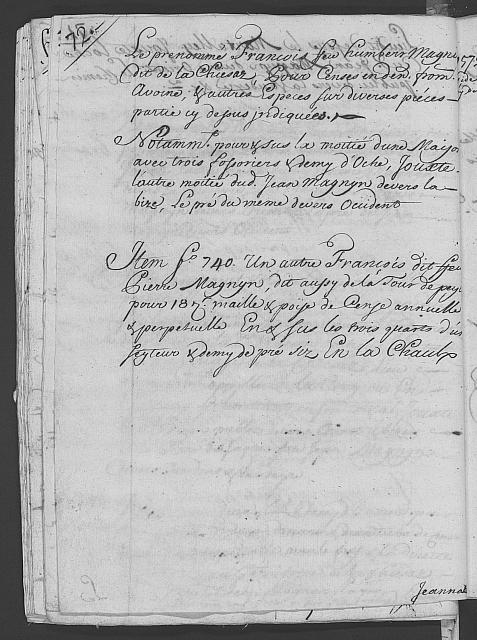 72.
Le prenommé François feu humbert Magny
dit de la Chiesaz, Pour Censes en den. from.
Avoine, & autres Especes sur diverses pieces
partie cy depus jndiquées.
Notamm.t pour & sus la moitié dune Maison
avec trois fossoriers & demy d'Oche, Jouxte
l'autre moitié dud. Jean Magnyn devers la
bize, Le pré du même devers Occident
Item f.o 740. Un autre François dit feu
Pierre Magnyn, dit aussy de la Tour de pey
pour 18 maille & poise de Cense annuelle
& perpetuelle En & sus les trois quarts d'un
seyteur & demy de pré siz En la Chaulx
Jeanna